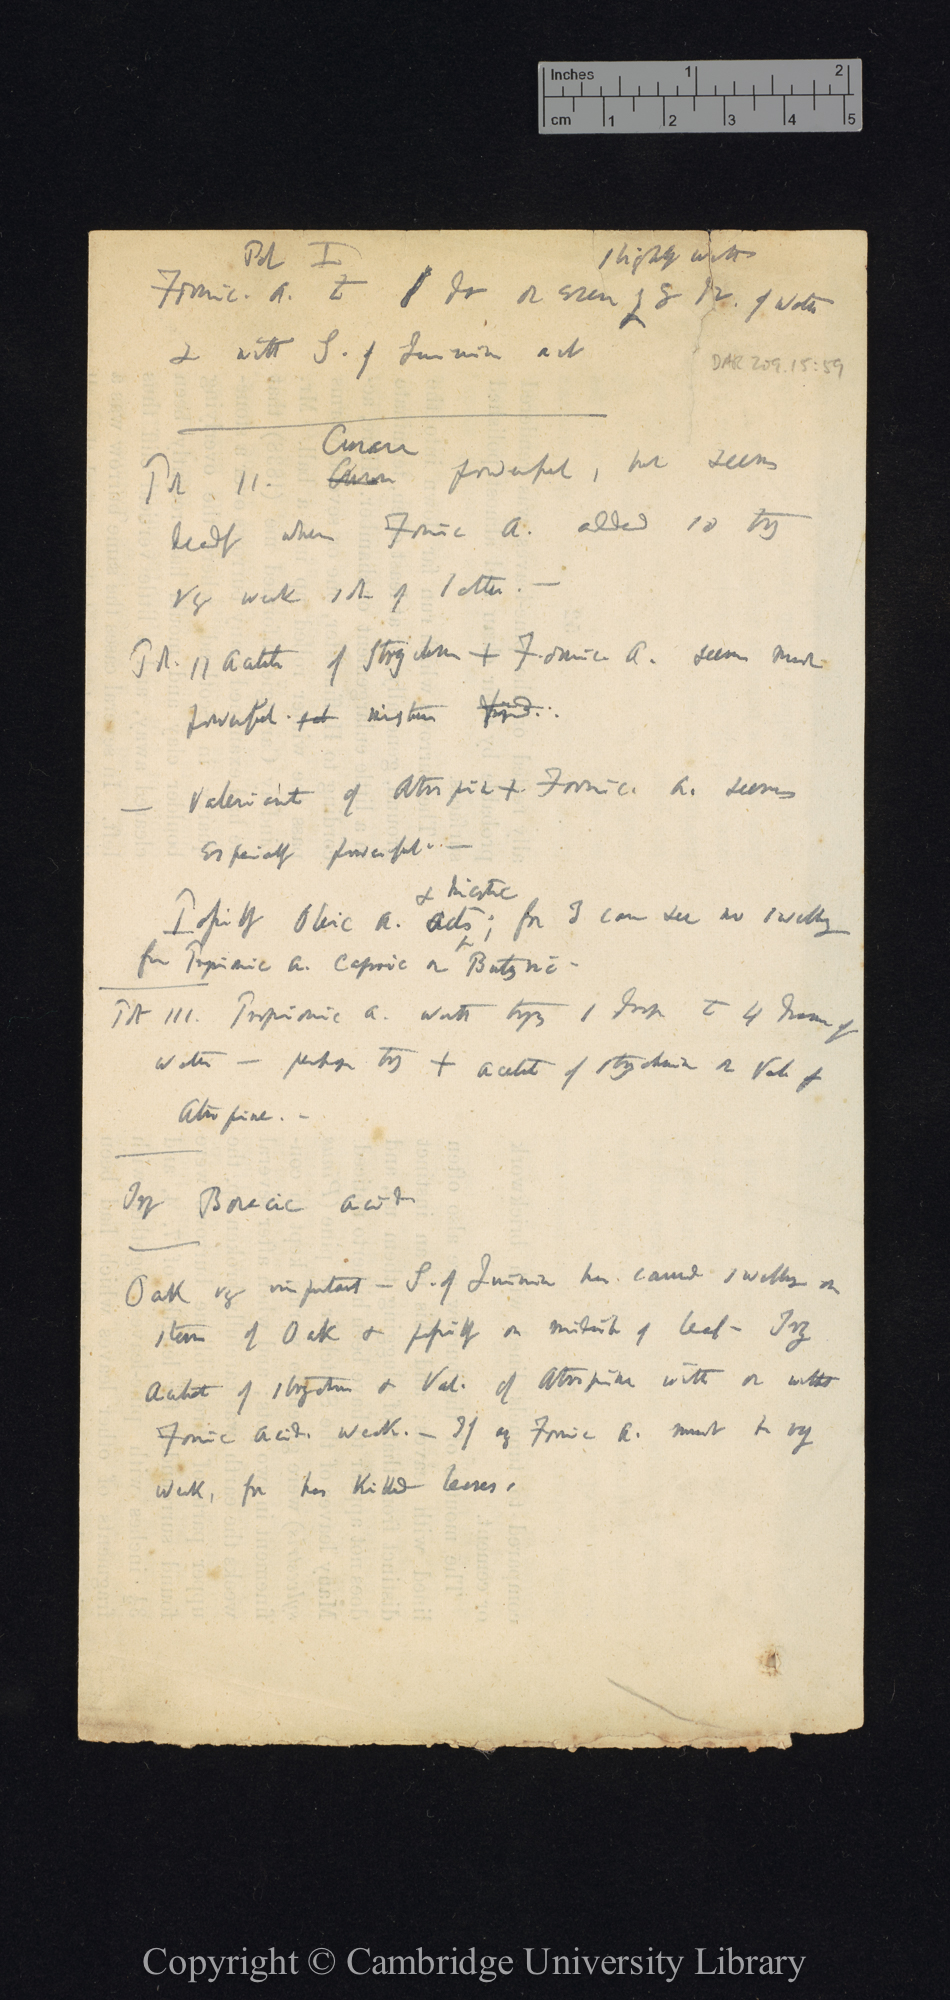 Inches 1 2
cm 1 2 3 4 5
Pot I slightly acts
Formic. a. to 1 dr or even 8 dr. of water
& with S. of Quinine act
DAR 209.15:59
Curare
Pot II. powerful, but seems
when Formic a. added so try
vy weak sol of latter. —
Pot. II Acetate of Strychnine + Formic a. seems most
powerful
— Valerianate of Atropine + Formic. a. seems
especially powerful. —
& lactic
I Oleic a. acts; for I can see no swelling
for Propionic a. Caproic or Butyric —
Pot III. Propionic a. worth trying 1 drop to 4 drams of
water — perhaps try + acetate of strychnine or Val of
Atropine. —
Try Boracic acid
Oak vy important — S. of Quinine has caused swelling on
stem of Oak & on midrib of leaf — Try
Acetate of strychnine & Val. of Atropine with or without
Formic acid. weak. — If Formic a. must be vy
weak, for has killed leaves.
Copyright © Cambridge University Library